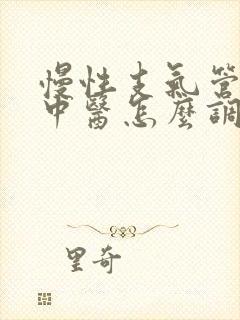 慢性支氣管
中醫怎麼調
里奇